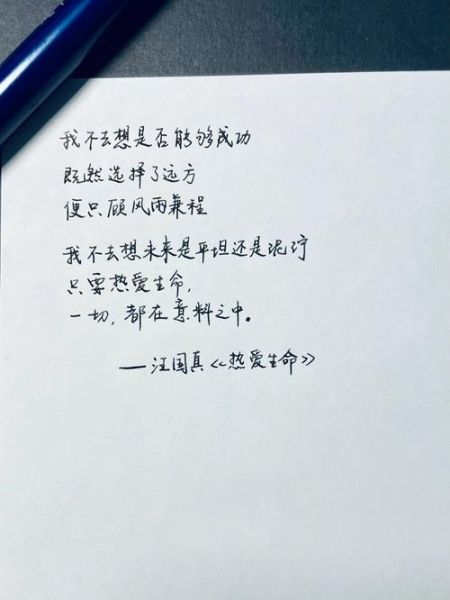 我不去想是否能够成功
既然选择了远方
便只顾风雨兼程
我不去想未来是平坦还是泥泞
只要热爱生命，
一切，都在意料之中。
——汪国真《热爱生命》